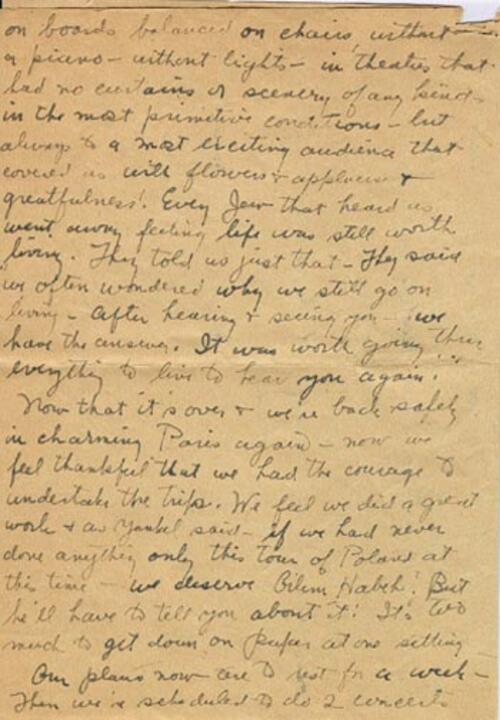 on boards balanced on chairs without
a piano - without lights - in theatres that
had no curtains or scenery of any kind -
in the most primitive conditions - but
always to a most exciting audience that
covered us with flowers + applause +
greatfulness! Every Jew that heard us
went away feeling life was still worth
living. They told us just that - They said
we often wondered why we still go on
living - after hearing + seeing you - we
have the answer. It was worth going thru
everything to live to hear you again!"
Now that it's over + we're back safely
in charming Paris again - now we
feel thankful that we had the courage to
undertake the trip. We feel we did a great
work + as Yankel said - if we had never
done anything only this tour of Poland at
this time - we deserve Oilim Habeh! But
he'll have to tell you about it! It's too
much to get down on paper at one sitting
Our plans now are to rest for a week -
Then we're scheduled to do 2 concerts